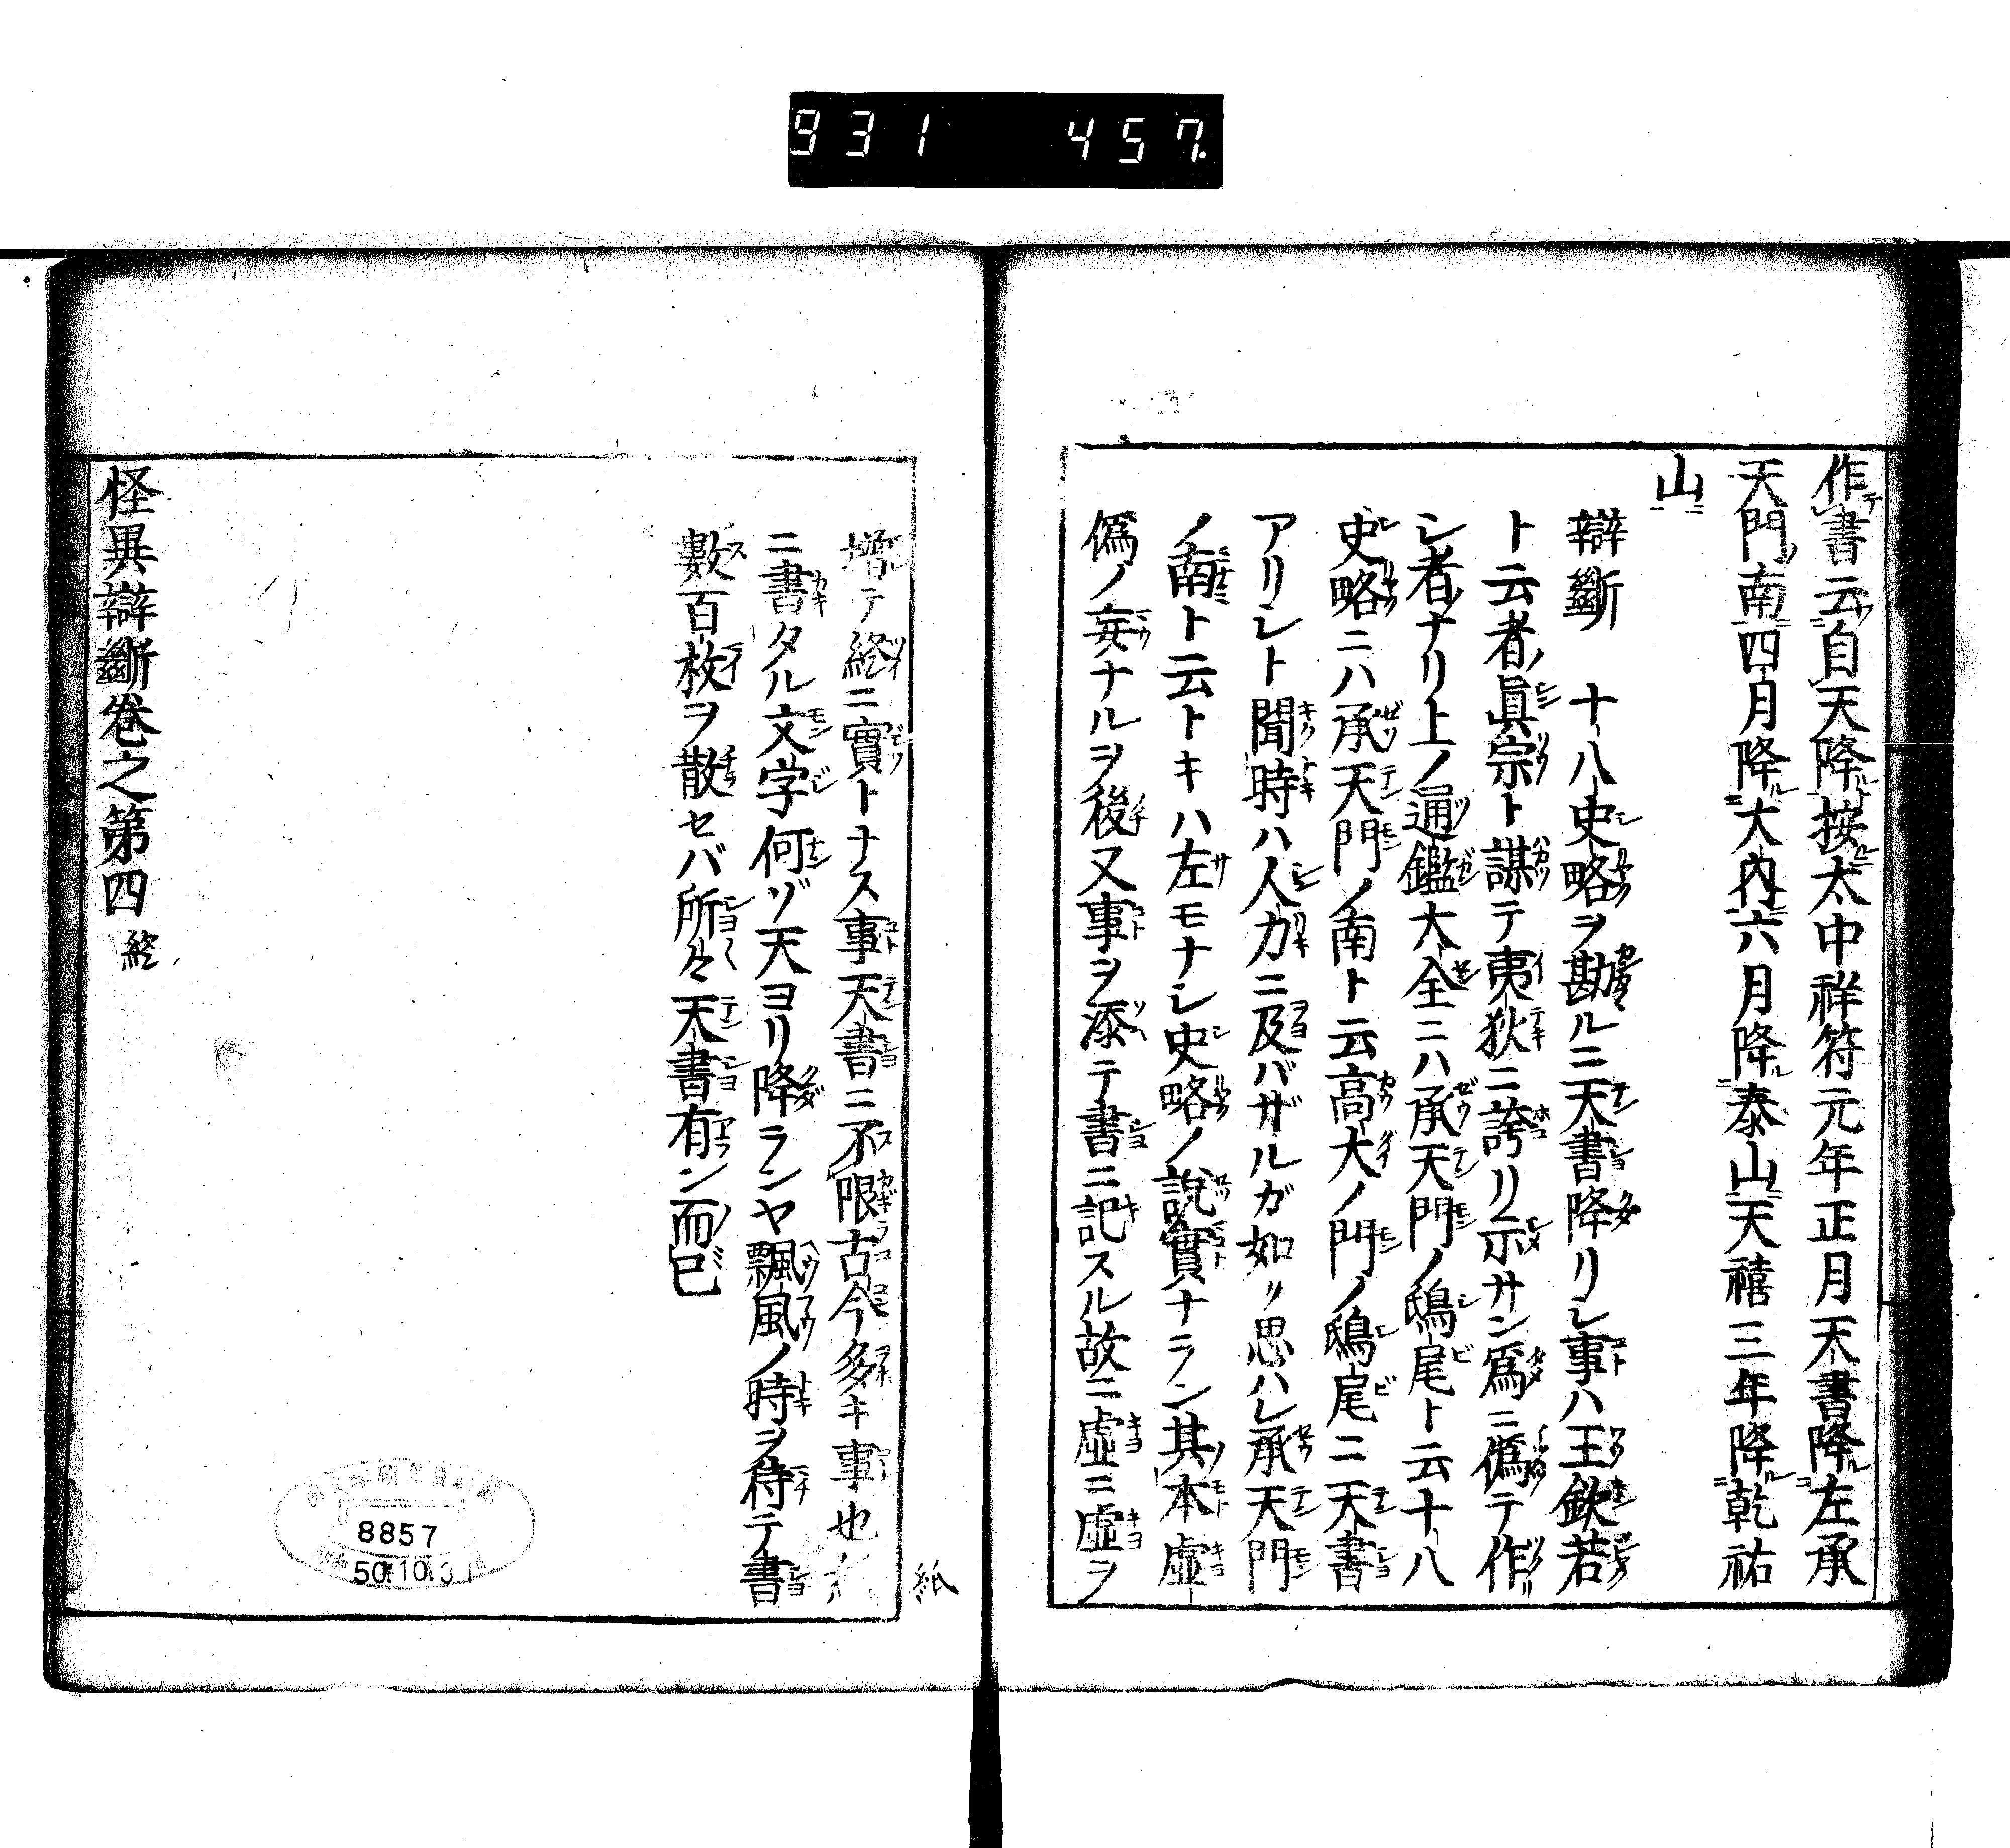 931 457.
作書云自天降按太中祥符元年正月天書降左承
天門南四月降大內六月降泰山天禧三年降乾祐
山
辯斷 十八史略ヲ勘ルニ天書降リシ事ハ王欽若
ト云者眞宗ト謀テ夷狄ニ誇リ示サン爲ニ僞テ作
シ者ナリ上ノ通鑑大全ニハ承天門ノ鴟尾ト云十八
史略ニハ承天門ノ南ト云高大ノ門ノ鴟尾ニ天書
アリシト聞時ハ人力ニ及バザルガ如ク思ハレ承天門
ノ南ト云トキハ左モナシ史略ノ說實ナラン其本虛
僞ノ妄ナルヲ後又事ヲ添テ書ニ記スル故ニ虛ニ虛ヲ
增テ終ニ實トナス事天書ニ不限古今多キ事也
紙
ニ書タル文字何ゾ天ヨリ降ランヤ飄風ノ時ヲ待テ書
數百枚ヲ散セバ所々天書有ン而已
怪異辯斷卷之第四 終
8857
50.10.31